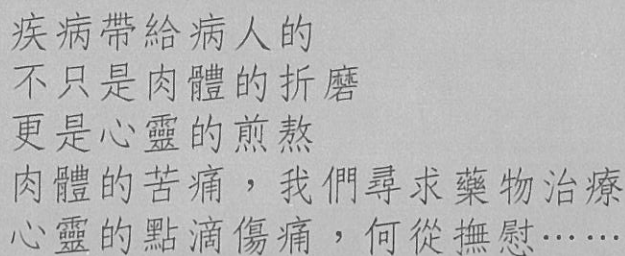 疾病帶給病人的
不只是肉體的折磨
更是心靈的煎熬
肉體的苦痛，我們尋求藥物治療
心靈的點滴傷痛，何從撫慰……